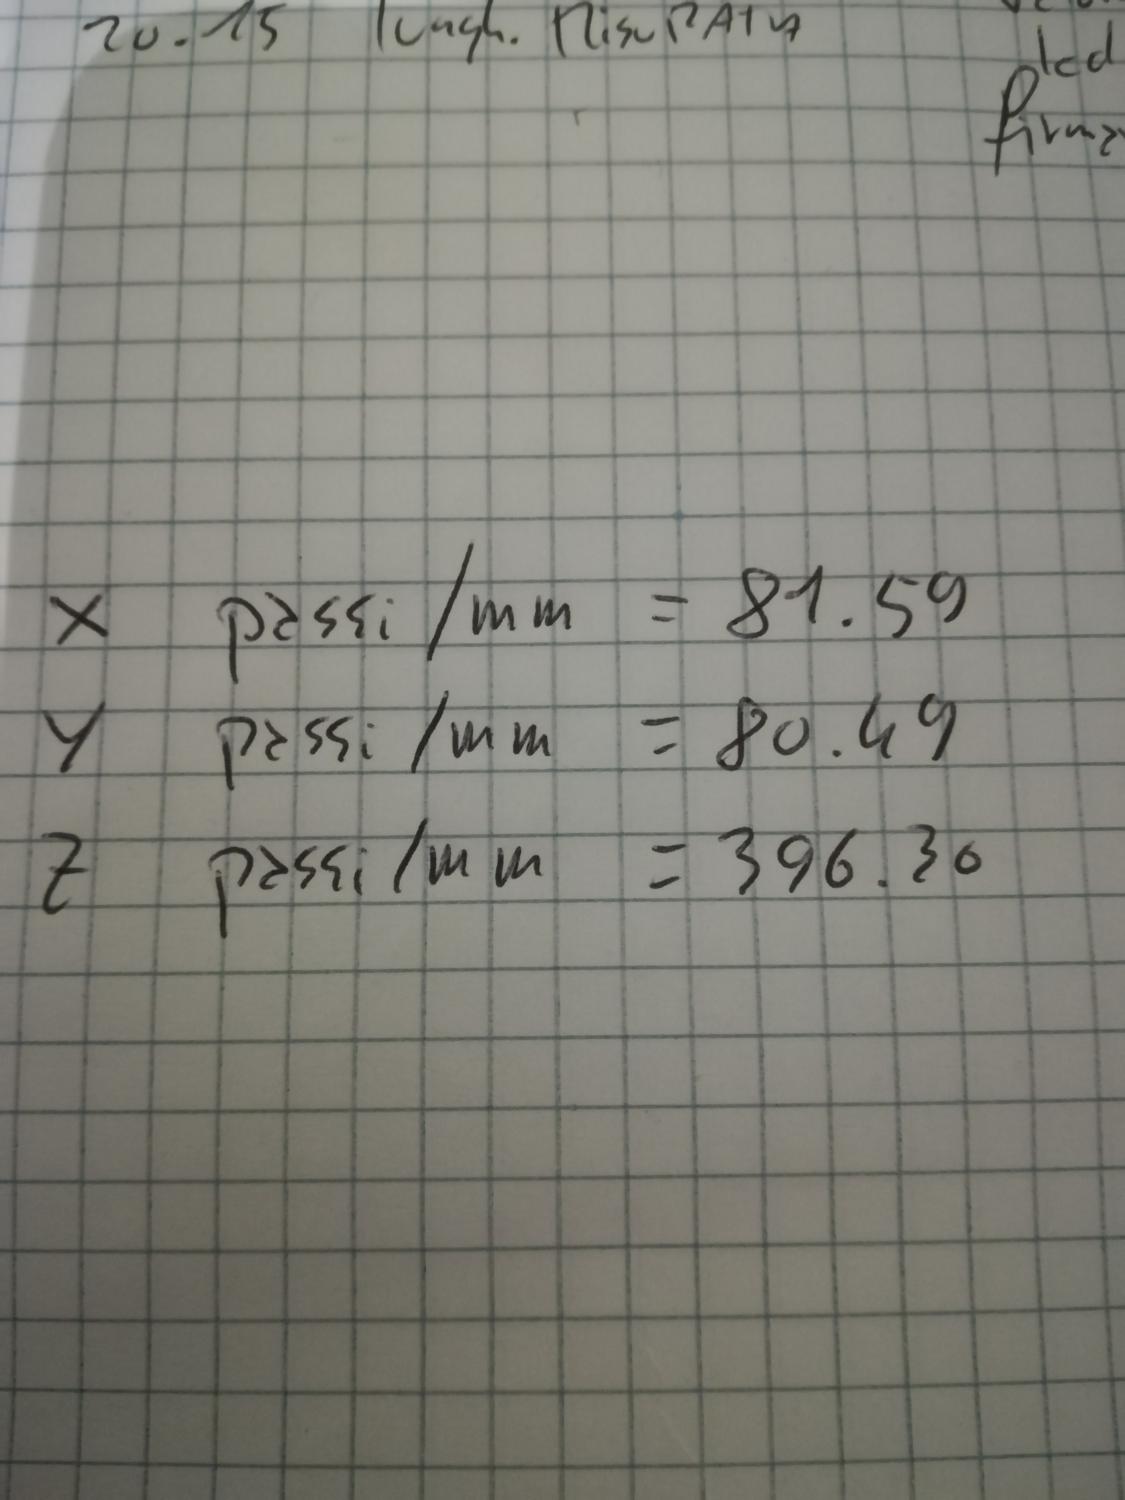 20.15 lungh. MisuRAtA
lcd
X passi/mm = 81.59
Y passi/mm = 80.49
Z passi/mm = 396.30